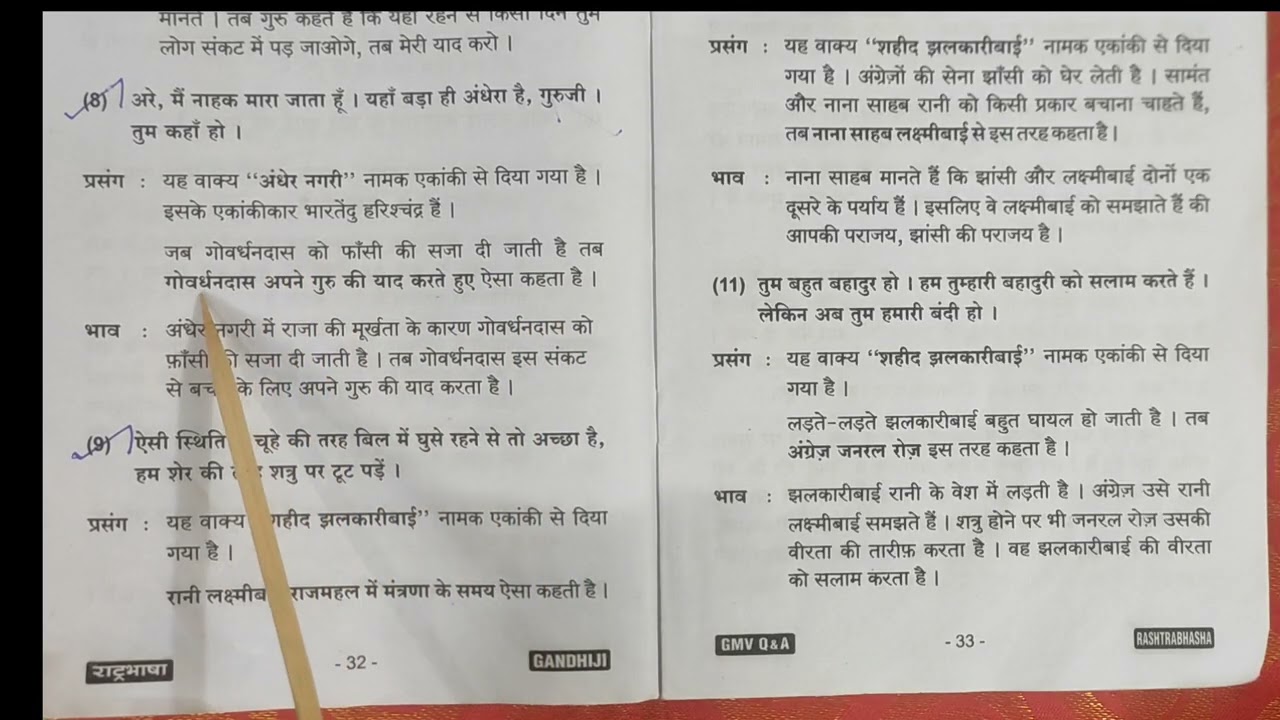 मानते । तब गुरु कहते हैं कि यहाँ रहने से किसी दिन तुम
लोग संकट में पड़ जाओगे, तब मेरी याद करो ।
(8) अरे, मैं नाहक मारा जाता हूँ । यहाँ बड़ा ही अंधेरा है, गुरुजी ।
तुम कहाँ हो ।
प्रसंग : यह वाक्य “अंधेर नगरी” नामक एकांकी से दिया गया है ।
इसके एकांकीकार भारतेंदु हरिश्चंद्र हैं ।
जब गोवर्धनदास को फाँसी की सजा दी जाती है तब
गोवर्धनदास अपने गुरु की याद करते हुए ऐसा कहता है ।
भाव : अंधेर नगरी में राजा की मूर्खता के कारण गोवर्धनदास को
फ़ाँसी की सजा दी जाती है । तब गोवर्धनदास इस संकट
से के लिए अपने गुरु की याद करता है ।
(9) ऐसी स्थिति चूहे की तरह बिल में घुसे रहने से तो अच्छा है,
हम शेर की शत्रु पर टूट पड़ें ।
प्रसंग : यह वाक्य “शहीद झलकारीबाई” नामक एकांकी से दिया
गया है ।
रानी राजमहल में मंत्रणा के समय ऐसा कहती है ।
राष्ट्रभाषा - 32 - GANDHIJI
प्रसंग : यह वाक्य “शहीद झलकारीबाई” नामक एकांकी से दिया
गया है । अंग्रेज़ों की सेना झाँसी को घेर लेती है । सामंत
और नाना साहब रानी को किसी प्रकार बचाना चाहते हैं,
तब नाना साहब लक्ष्मीबाई से इस तरह कहता है ।
भाव : नाना साहब मानते हैं कि झांसी और लक्ष्मीबाई दोनों एक
दूसरे के पर्याय हैं । इसलिए वे लक्ष्मीबाई को समझाते हैं की
आपकी पराजय, झांसी की पराजय है ।
(11) तुम बहुत बहादुर हो । हम तुम्हारी बहादुरी को सलाम करते हैं ।
लेकिन अब तुम हमारी बंदी हो ।
प्रसंग : यह वाक्य “शहीद झलकारीबाई” नामक एकांकी से दिया
गया है ।
लड़ते-लड़ते झलकारीबाई बहुत घायल हो जाती है । तब
अंग्रेज़ जनरल रोज़ इस तरह कहता है ।
भाव : झलकारीबाई रानी के वेश में लड़ती है । अंग्रेज़ उसे रानी
लक्ष्मीबाई समझते हैं । शत्रु होने पर भी जनरल रोज़ उसकी
वीरता की तारीफ़ करता है । वह झलकारीबाई की वीरता
को सलाम करता है ।
GMV Q&A - 33 - RASHTRABHASHA